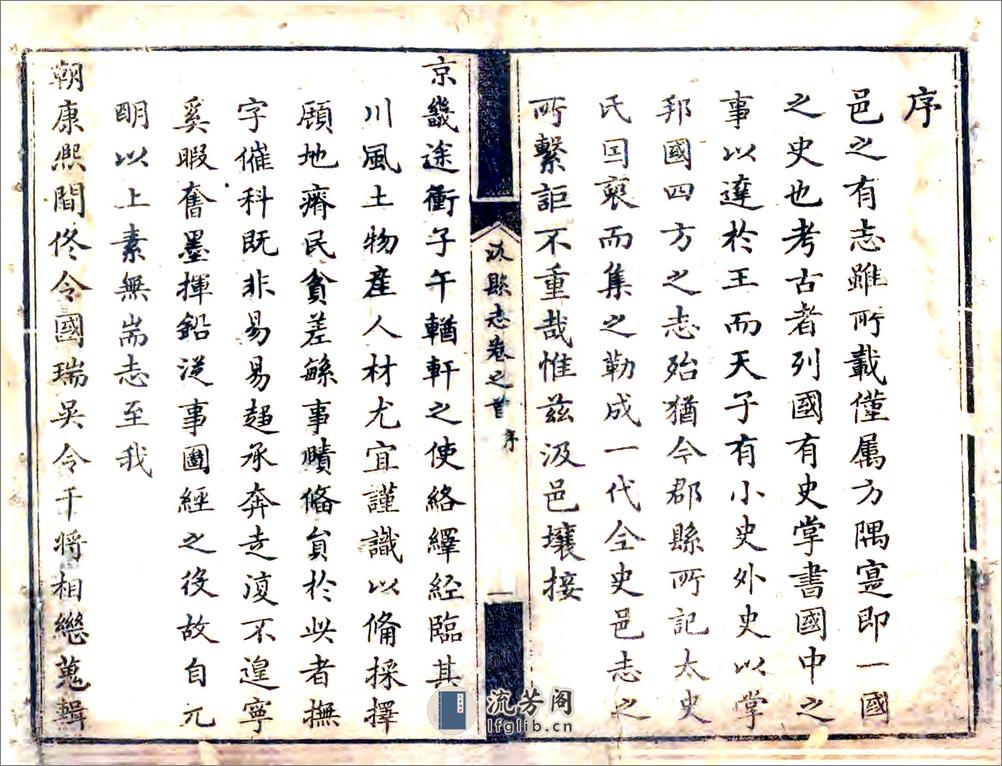 序
邑之有志雖所載僅属方隅寔即一國
之史也考古者列國有史掌書國中之
事以達於王而天子有小史外史以掌
邦國四方之志殆猶今郡縣所記太史
氏因裒而集之勒成一代全史邑志之
所繫詎不重哉惟兹汲邑壤接
汲縣志卷之首 序
一
京畿途衝子午輶軒之使絡繹經臨其
川風土物產人材尤宜謹識以備採擇
顧地瘠民貧差繇事賾俻員於此者撫
字催科既非易易趨承奔走復不遑寧
奚暇奮墨揮鉛從事圖經之役故自元
明以上素無耑志至我
朝康熙間佟令國瑞吳令干將相繼蒐輯
流芳阁
lfglib.cn